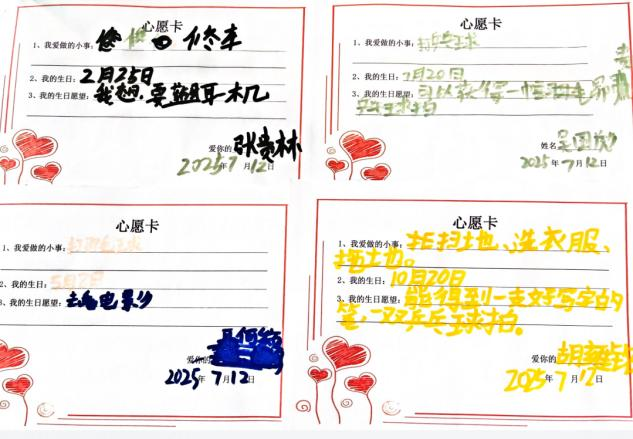 心愿卡
1、我爱做的小事：修车
2、我的生日：2月25日
3、我的生日愿望：我想要蓝牙耳机
爱你的张贵林
2025年7月12日
心愿卡
1、我爱做的小事：打乒乓球
2、我的生日：7月20日
3、我的生日愿望：可以
乓球拍
姓名
2025年7月12日
心愿卡
1、我爱做的小事：打羽毛球
2、我的生日：5月7日
3、我的生日愿望：去看电影
爱你的
2025年7月12日
心愿卡
1、我爱做的小事：扫地、洗衣服、
拖土也。
2、我的生日：10月20日
3、我的生日愿望：能得到一支好写字的
笔，一双乒乓球拍。
爱你的胡
2025年7月12日